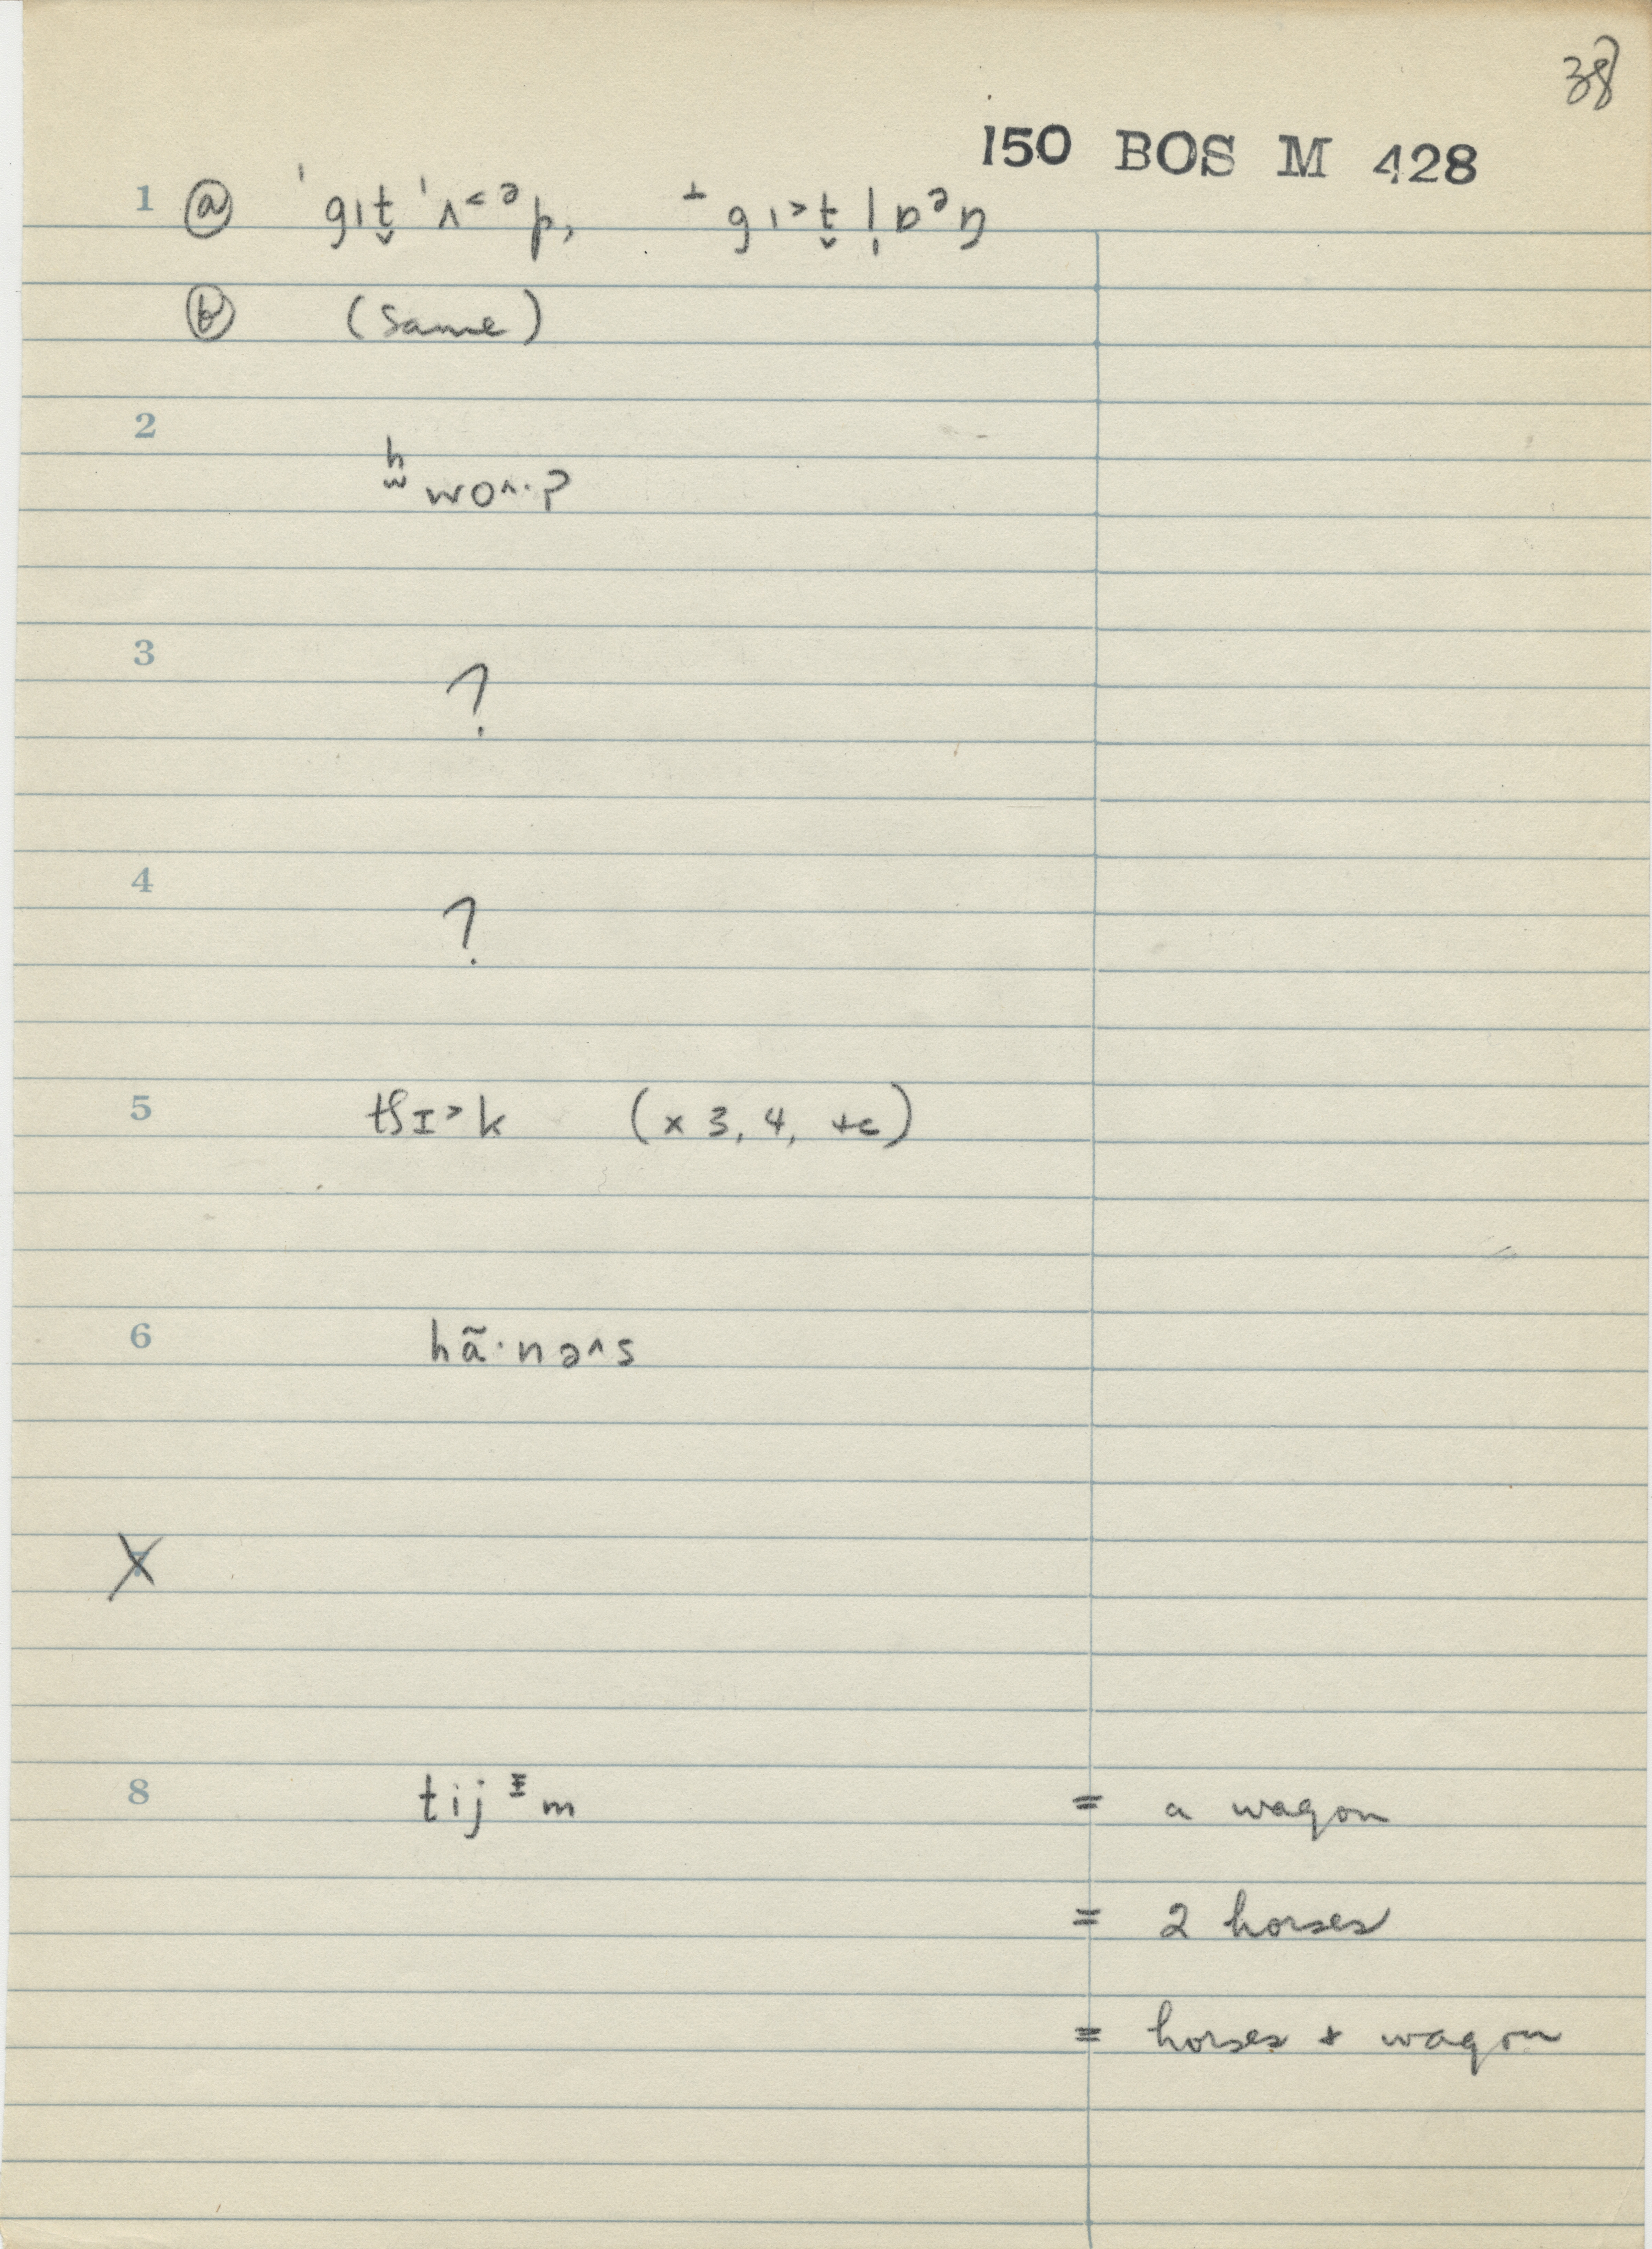 38
150 BOS M 428
1 ⓐ ˈgɪt̬ ˈʌ˂ᵊp,
ⓑ (same)
2
ʰwo^·?
3 ?
4 ?
5 tʃɪ˃k (x 3, 4, +c)
6 hã·nə^s
7
8 tijᶧm = a wagon
= 2 horses
= horses + wagon